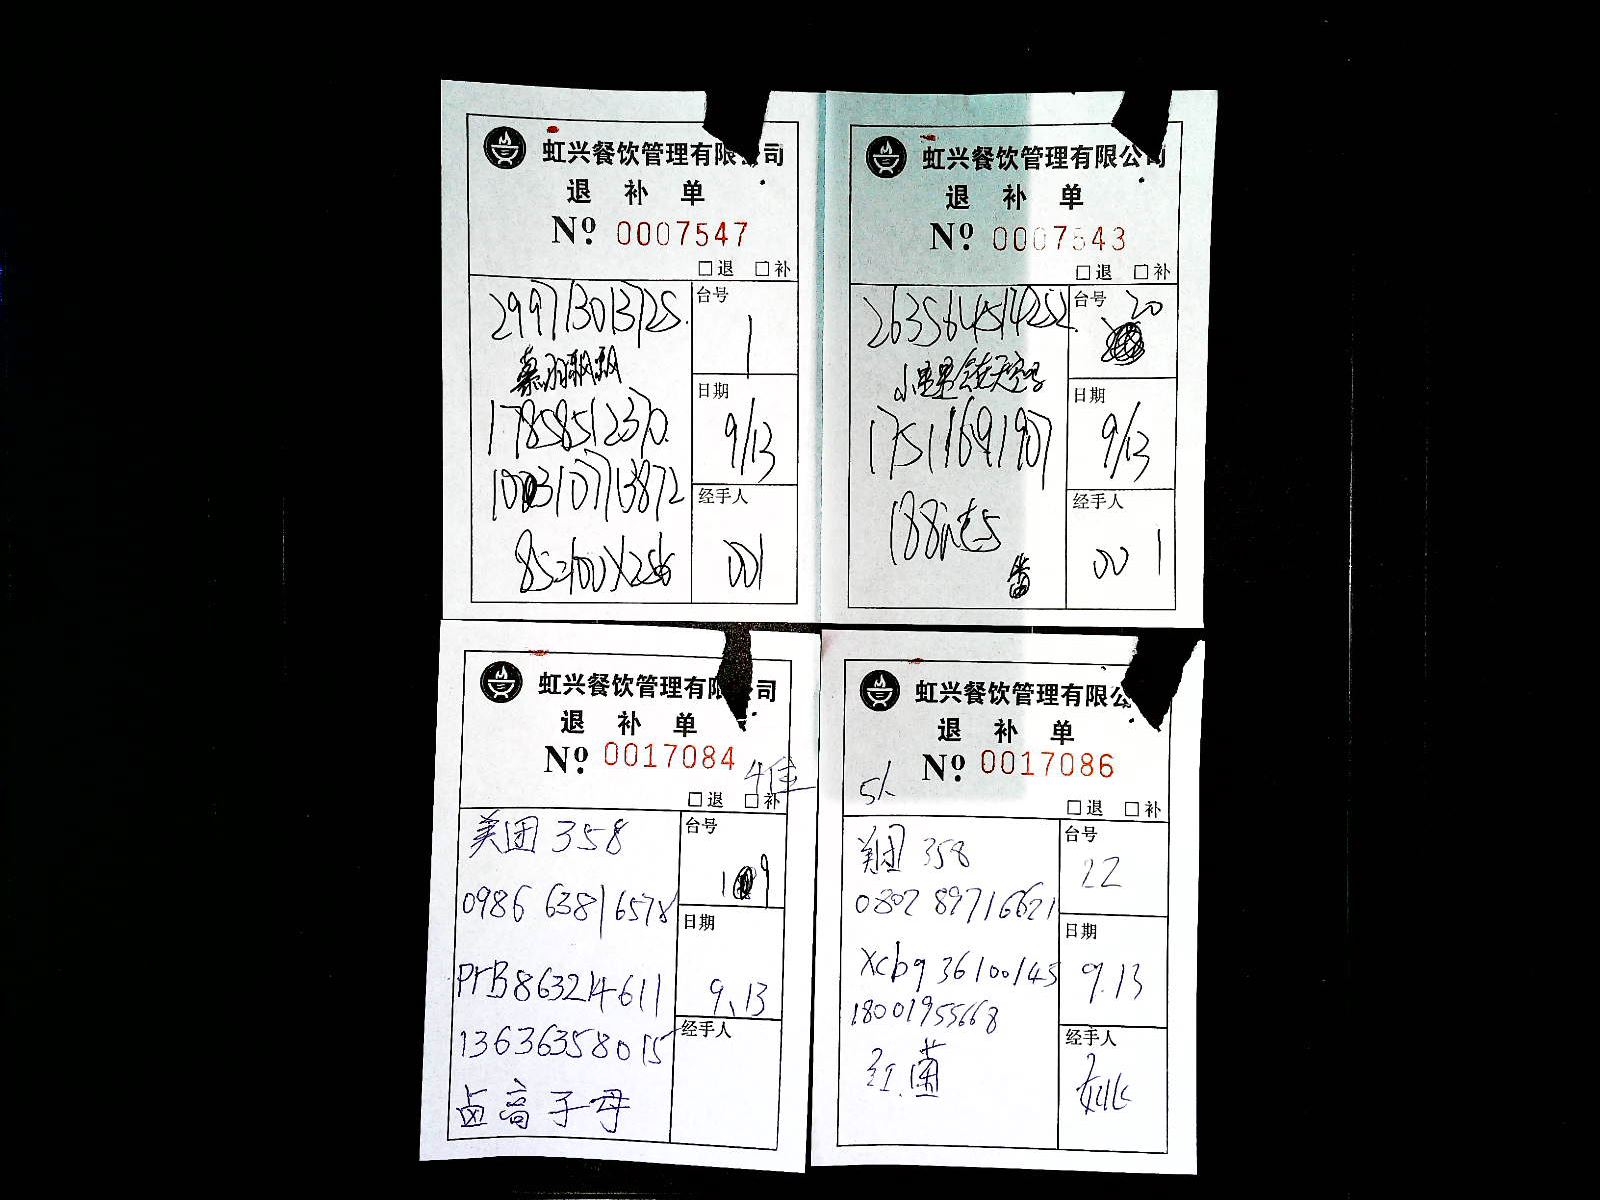 虹兴餐饮管理有限公司
退 补 单
Nº 0007547
□退 □补
2997130137125
台号
1
慕羽飘飘
17858512370
日期
9/13
1003107713872
经手人
001
虹兴餐饮管理有限公司
退 补 单
Nº 0007543
□退 □补
台号
20
日期
17511691907
9/13
经手人
001
虹兴餐饮管理有限公司
退 补 单
Nº 0017084
4位
□退 □补
美团 358
台号
0986 63816578
日期
9.13
PTB863214611
13636358015
经手人
卤高子母
虹兴餐饮管理有限公司
退 补 单
Nº 0017086
5人
□退 □补
美团 358
台号
22
0802 89716621
日期
9.13
xcbq 36100145
18001955668
经手人
红菌